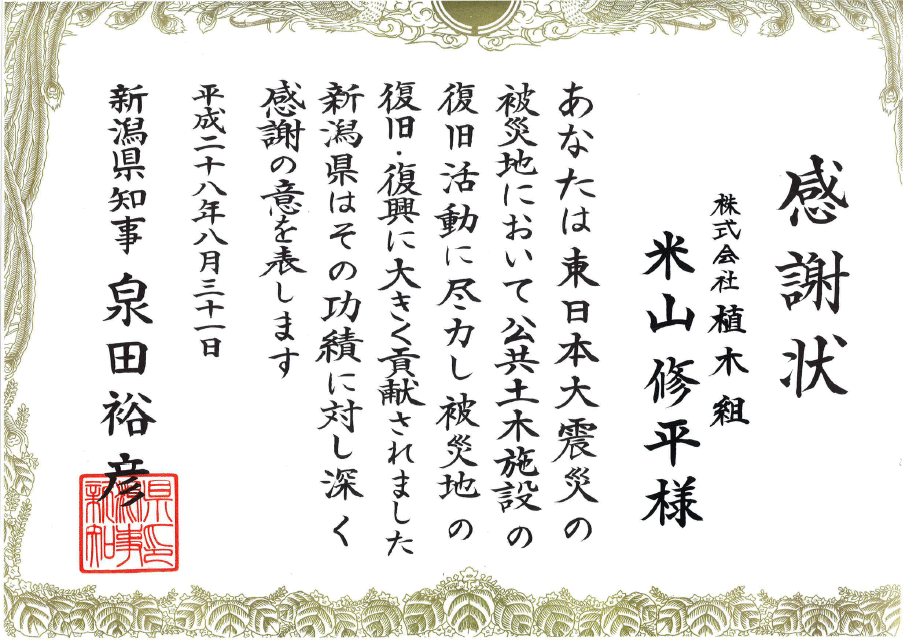 感謝状
株式会社植木組
米山修平様
あなたは東日本大震災の
被災地において公共土木施設の
復旧活動に尽力し被災地の
復旧・復興に大きく貢献されました
新潟県はその功績に対し深く
感謝の意を表します
平成二十八年八月三十一日
新潟県知事 泉田裕彦
新潟県知事之印